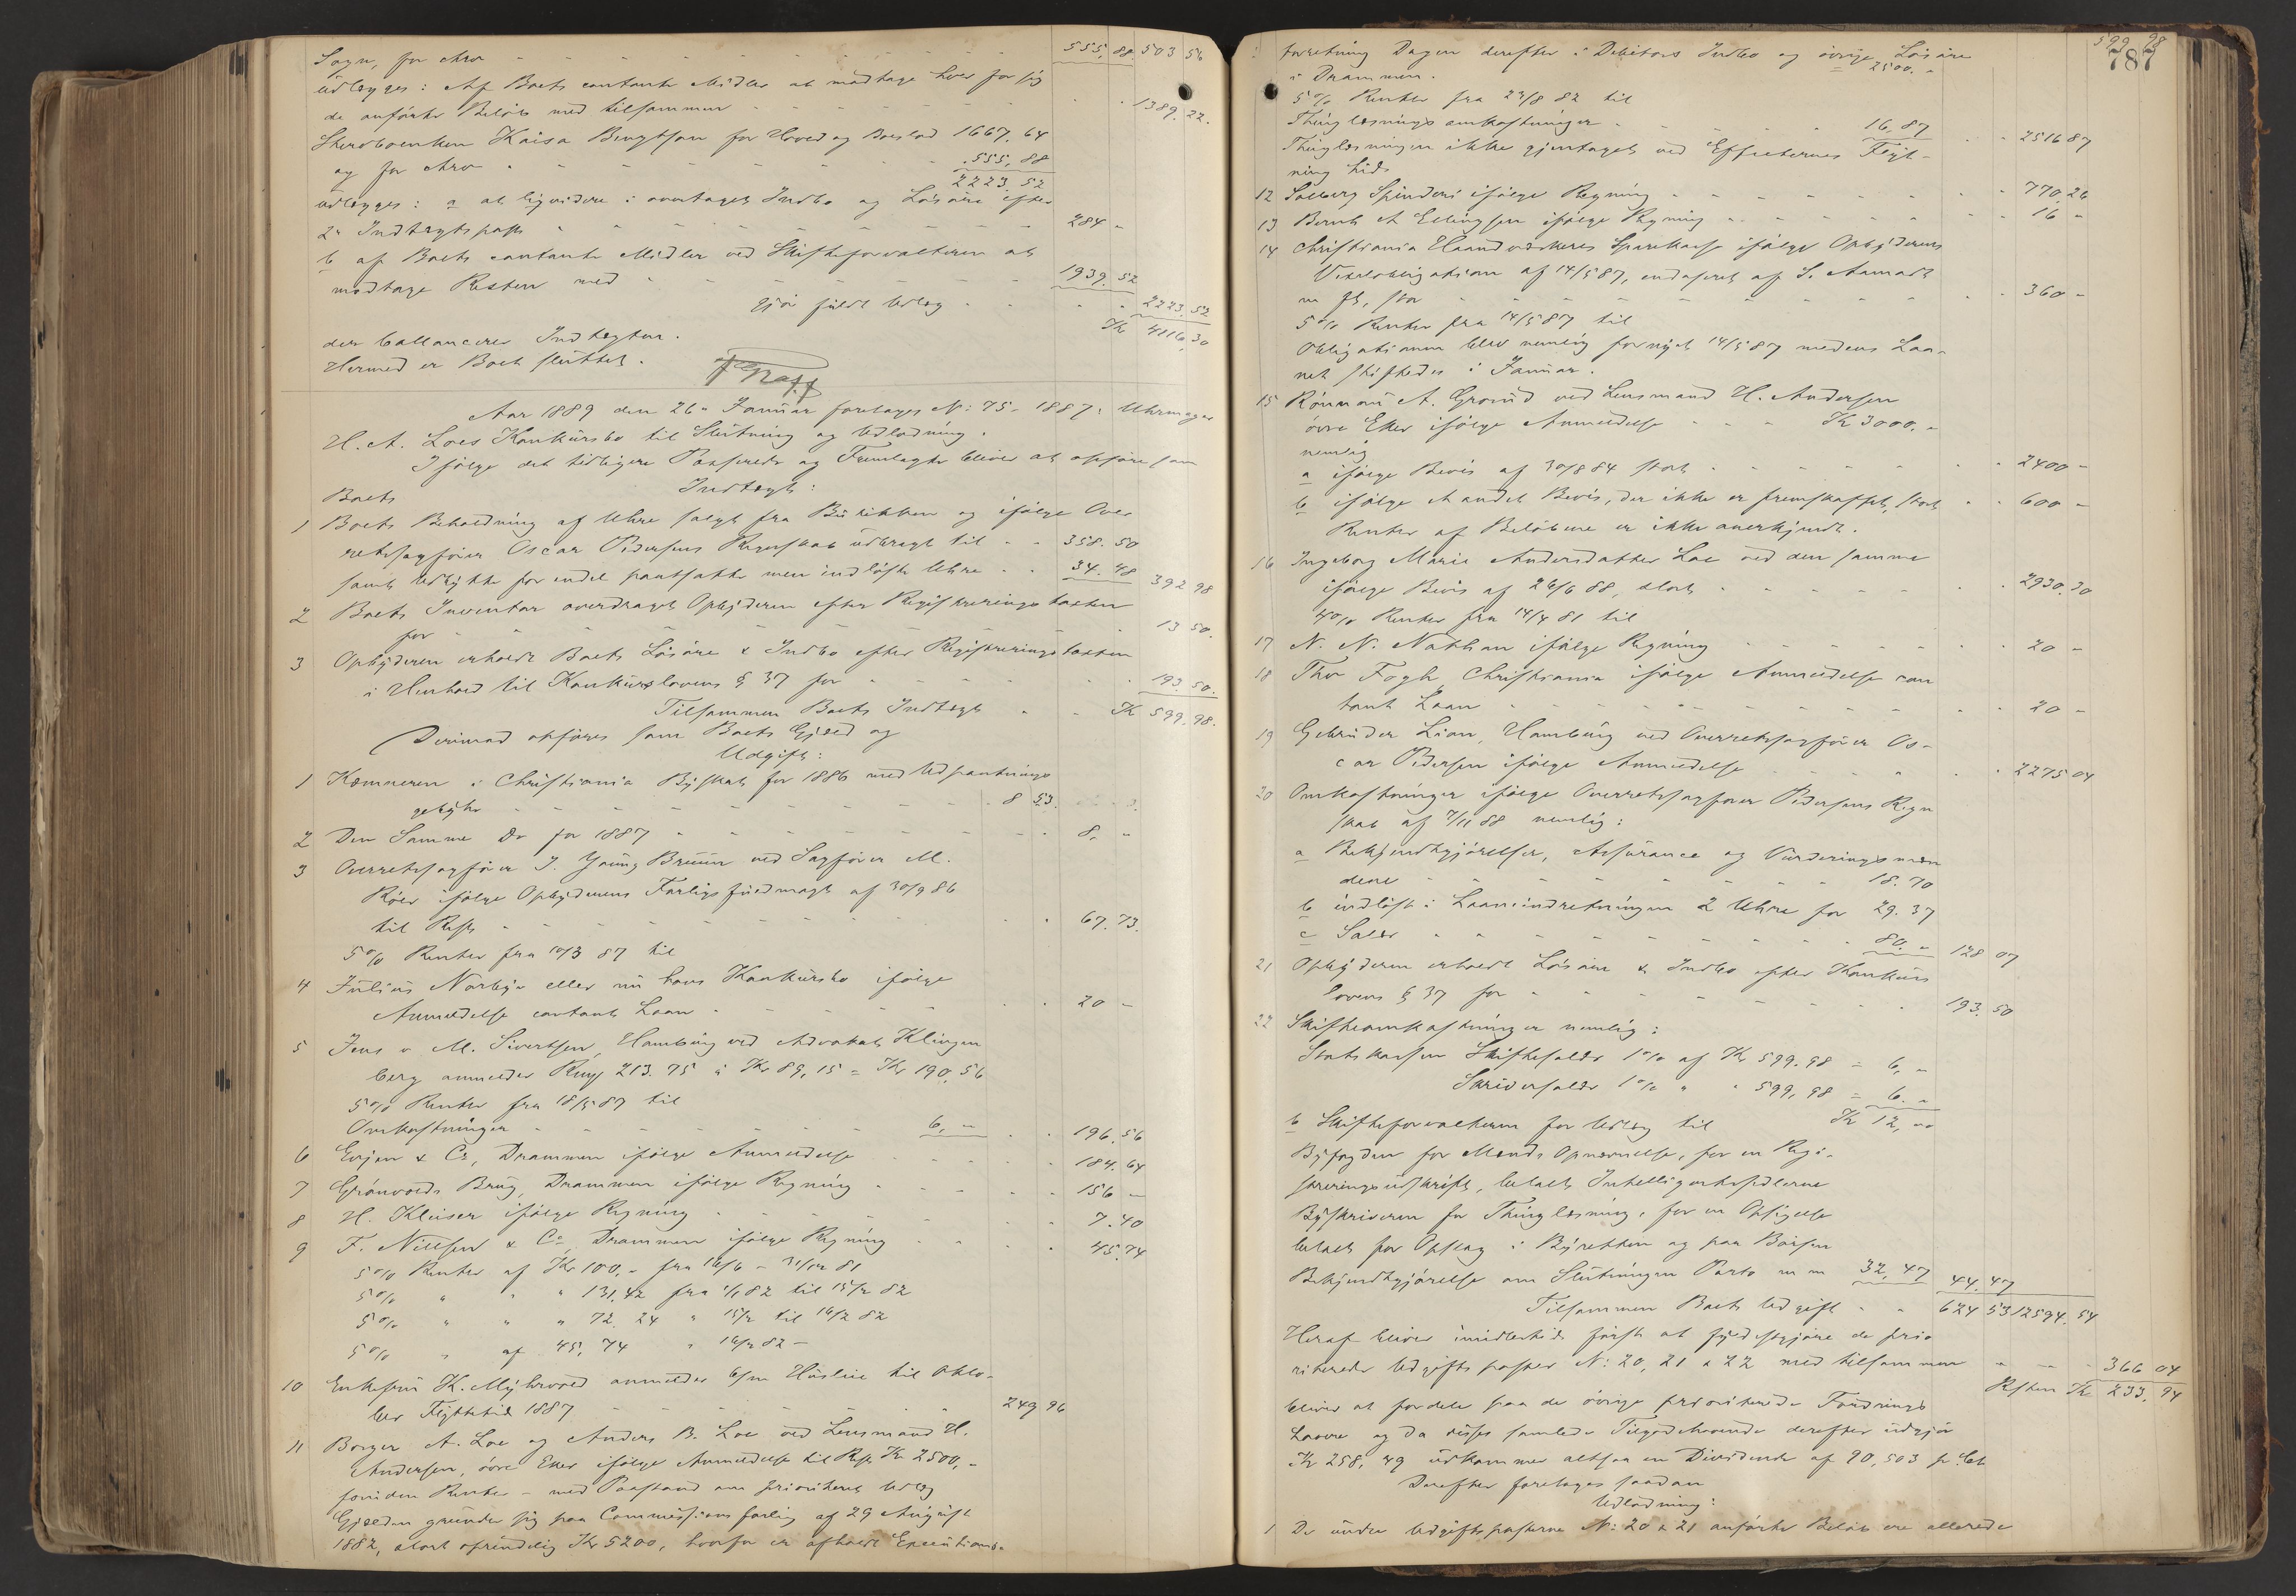 Sogn, for Arv - - - - - 555,88. 503 56
udlægges: Af Boets contante Midler at modtage hver for sig
de anførte Beløb med tilsammen - - - - 1389.22.
Skredenken Kaisa Bengtson for Hoved og Boeslod 1667.64
og for Arv - - - - - 555,88
2223.52
udlægges: a at liqvidere i overtaget Indbo og Løsøre efter
2n Indtægtspost - - - - - 284 -
b af Boets contante Midler ved Skifteforvalteren at
modtage Resten med - - - - 1939.52
gjør fuldt Udlæg - - - 2223.52
der ballancerer Indtægten. Kr 4116,30
Hermed er Boet sluttet.
Aar 1889 den 26n Januar foretages No: 75 - 1887: Uhrmager
H. A. Loes Konkursbo til Slutning og Udlodning.
Ifølge det tidligere Passerede og Fremlagte bliver at opføre som
Boets Indtægt:
1 Boets Beholdning af Uhre solgt fra Butikken og ifølge Over
retssagfører Oscar Pedersens Regnskab udbragt til - - 358.50
samt Udbytte for endel pantsatte men indløste Uhre - - 34.48 392 98
2 Boets Inventar overdraget Opbyderen efter Registreringstaxten
for - - - - - - 13 50.
3 Opbyderen erholdt Boets Løsøre & Indbo efter Registreringstaxten
i Henhold til Konkurslovens § 37 for - - - - 193.50.
Tilsammen Boets Indtægt - - Kr 599.98.
Derimod opføres som Boets Gjæld og
Udgift:
1 Kæmneren i Christiania Byskat for 1886 med Udpantnings
gebyhr - - - - - - 8 53.
2 Den Samme Do for 1887 - - - - - 8. -
3 Overretssagfører J. Young Bruun ved Sagfører M.
Röer ifølge Opbyderens Forligsfuldmagt af 30/9 86
til Rest - - - - - - 67.73.
5% Renter fra 10/3 87 til
4 Julius Norbye eller nu hans Konkursbo ifølge
Anmeldelse contant Laan - - - - - 20 -
5 Jens v. M. Sivertsen, Hamburg ved Advokat Klingen
berg anmelder Rmg 213.75 à Kr 89,15 = Kr 190,56
5% Renter fra 18/5 87 til
Omkostninger - - - - - 6, - - - 196.56
6 Evjen & Co, Drammen ifølge Anmeldelse - - - - 184.64
7 Grönvolds Brug, Drammen ifølge Regning - - - - 156 -
8 H. Kleiser ifølge Regning - - - - - 7.40
9 F. Nielsen & Co, Drammen ifølge Regning - - - - 45.74
5% Renter af Kr 100, - fra 16/6 - 31/12 81
5% " " " 131.42 fra 1/1 82 til 15/2 82
5% " " " 72.24 " 15/2 til 16/2 82
5% " af 45,74 " 16/2 82 -
10 Enkefru K. Myhrvold anmelder 6/m Husleie til Okto-
ber Flyttetid 1887 - - - - - 249 96
11 Borger A. Loe og Anders B. Loe ved Lensmand H.
Andersen, övre Eker ifølge Anmeldelse til Rest Kr 2500, -
foruden Renter - med Paastand om prioriteret Udlæg
Gjælden grunder sig paa Commissionsforlig af 29 August
1882, stort oprindelig Kr 5200, hvorfor er afholdt Executions-
599 98
787
forretning Dagen derefter i Debitors Indbo og øvrige Løsøre
i Drammen. - 2500. -
5% Renter fra 29/8 82 til
Thinglæsningsomkostninger - - - - - 16,87 - - 2516 87
Thinglæsningen ikke gjentaget ved Effecternes Flyt-
ning hid.
12 Solberg Spinderi ifølge Regning - - - - - 770.26
13 Bernt A Ellingsen ifølge Regning - - - - - 16 -
14 Christiania Haandværkeres Sparekasse ifølge Opbyderens
Vexelobligation af 14/5 87, endosseret af S. Aamodt
m fl, stor - - - - - - 360 -
5% Renter fra 14/5 87 til
Obligationen blev nemlig fornyet 14/5 87 medens Laa-
net stiftedes i Januar.
15 Rönnau A. Groind ved Lensmand H. Andersen
övre Eker ifølge Anmeldelse - - - Kr 3000. -
nemlig
a ifølge Bevis af 30/8 84 stort - - - - 2400 -
b ifølge et andet Bevis, der ikke er fremskaffet, stort - - 600 -
Renter af Beløbene er ikke anerkjendt.
16 Ingeborg Marie Andersdatter Loe ved den samme
ifølge Bevis af 26/6 88, stort - - - - - 2930.30
4% Renter fra 14/4 81 til
17 N. N. Nathan ifølge Regning - - - - - 20 -
18 Thv Fogh, Christiania ifølge Anmeldelse con
tant Laan - - - - - - 20 -
19 Gebrüder Lion, Hamburg ved Overretssagfører Os-
car Pedersen ifølge Anmeldelse - - - - 2275 04
20 Omkostninger ifølge Overretssagfører Pedersens Regn
skab af 7/11 88 nemlig:
a Bekjendtgjørelser, Assurance og Vurderingsmæn
dene - - - - - 18.70
b indløst i Laaneindretningen 2 Uhre for 29.37
c Salær - - - - - 80. - 128 07
21 Opbyderen erholdt Løsøre & Indbo efter Konkurs
lovens § 37 for - - - - - 193.50
22 Skifteomkostninger nemlig:
Statskassen Skiftesalær 1% af Kr 599.98 = 6, -
Skriversalær 1% " " 599,98 = 6. -
Kr 12, -
b Skifteforvalteren for Udlæg til
Byfogden for Mænds Opnævnelse, for en Regi-
streringsudskrift, betalt Intelligentssedlerne
Byskriveren for Thinglæsning, for en Opsigelse
betalt for Opslag i Byretten og paa Börsen
Bekjendtgjørelse om Slutningen Porto m m 32,47 44.47
Tilsammen Boets Udgift - - 624 53 12594.54
Heraf bliver imidlertid først at fyldestgjøre de prio
riterede Udgiftsposter No: 20, 21 & 22 med tilsammen - - - 366 04
Resten Kr 233,94
bliver at fordele paa de øvrige prioriterede Fordrings
havere og da disses samlede Tilgodehavende derefter udgjør
Kr 258,49 udkommer altsaa en Dividende af 90,503 pr Ct
Derefter foretages saadan
Udlodning:
1 De under Udgiftsposterne No: 20 & 21 anførte Beløb ere allerede